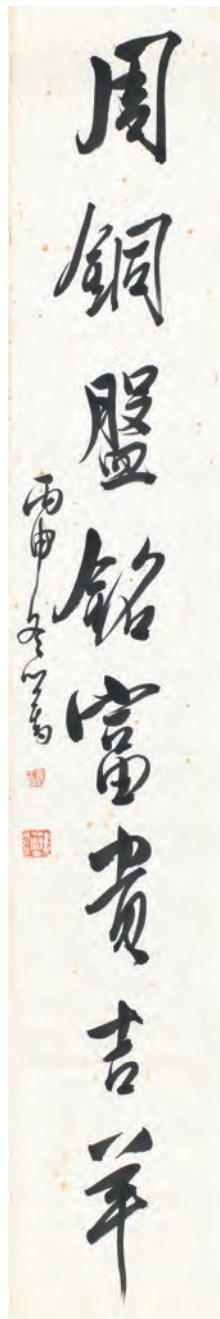 周銅盤銘富貴吉羊
丙申冬心畬